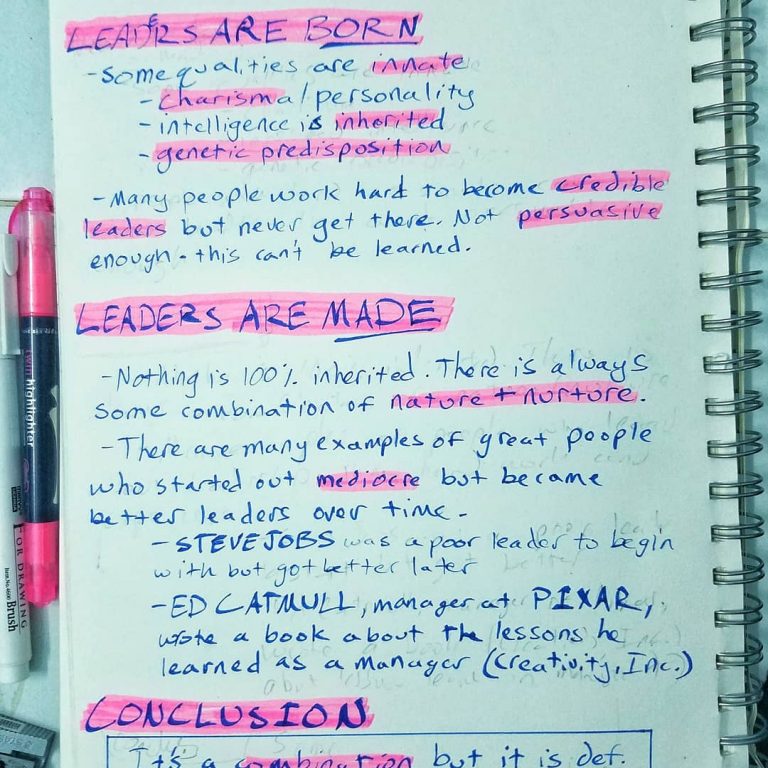 LEADERS ARE BORN
- Some qualities are innate
- charisma/personality
- intelligence is inherited
- genetic predisposition
- Many people work hard to become credible
leaders but never get there. Not persuasive
enough - this can't be learned.
LEADERS ARE MADE
- Nothing is 100% inherited. There is always
some combination of nature + nurture.
- There are many examples of great poople
who started out mediocre but became
better leaders over time -
- STEVE JOBS was a poor leader to begin
with but got better later
- ED CATMULL, manager at PIXAR,
wrote a book about the lessons he
learned as a manager (Creativity, Inc.)
CONCLUSION
It's a combination but it is def.
twin highlighter
FOR DRAWING
Brush